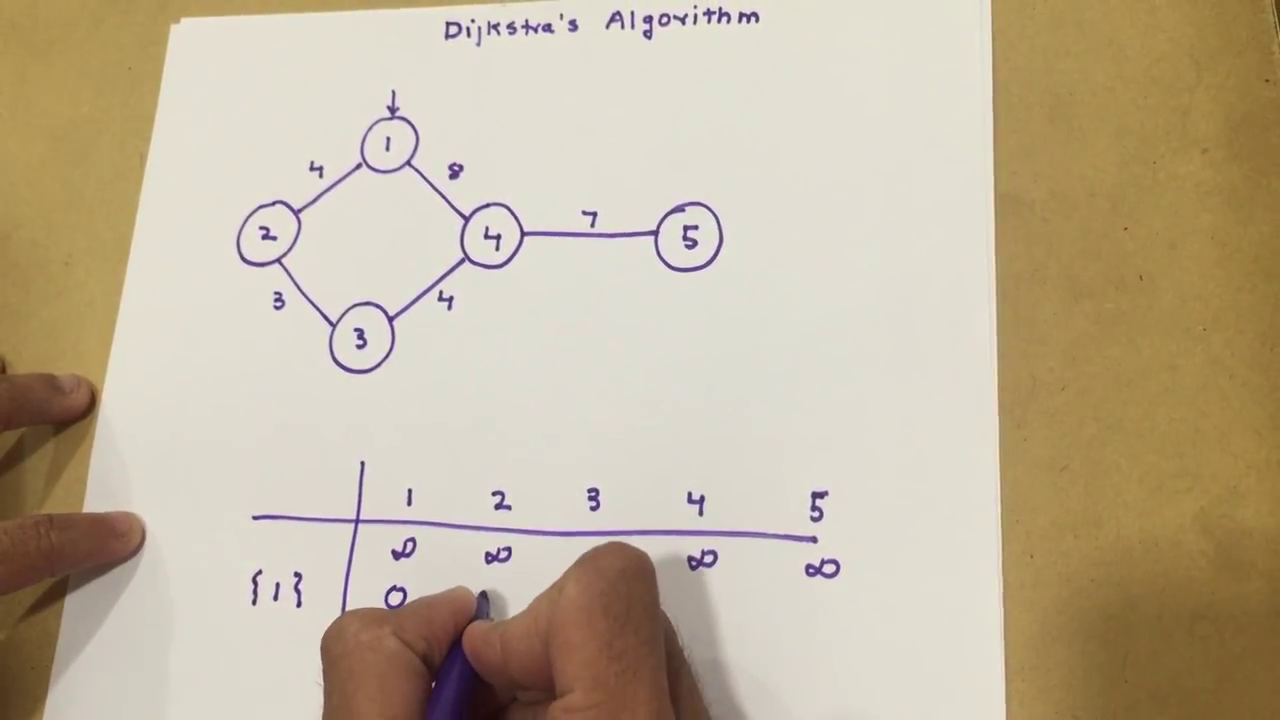 Dijkstra's Algorithm
1
4 8
2 4 7 5
3 4
3
1 2 3 4 5
∞ ∞ ∞ ∞
{1} 0